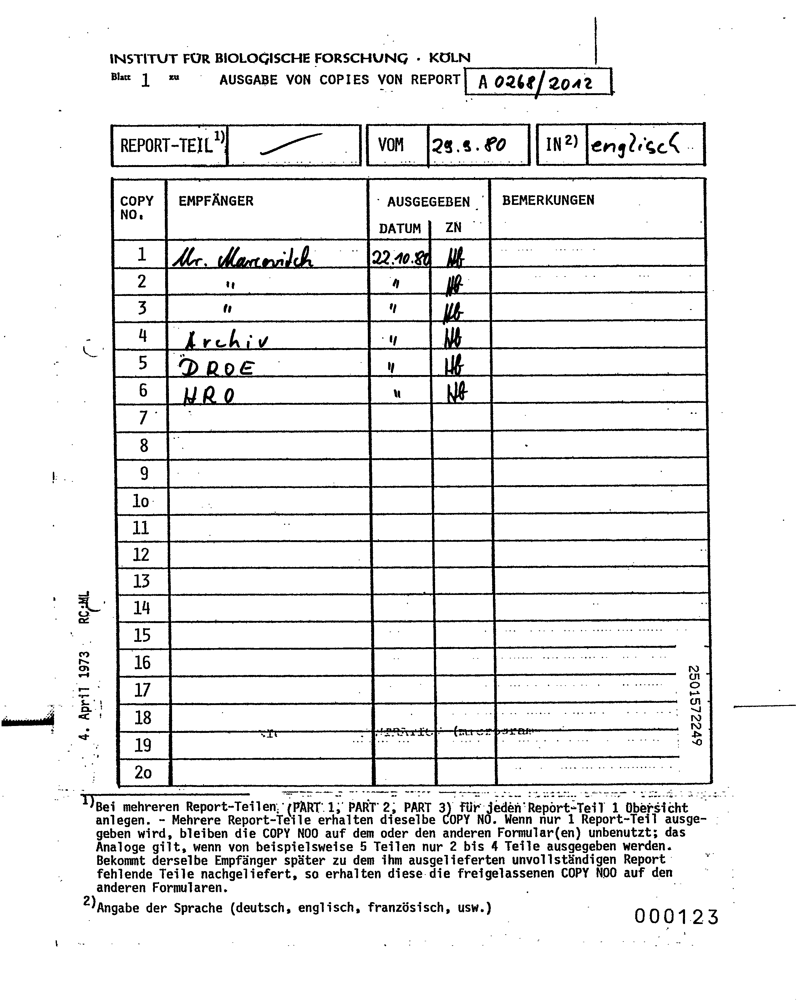 INSTITUT FÜR BIOLOGISCHE FORSCHUNG · KÖLN
Blatt 1 zu AUSGABE VON COPIES VON REPORT A 0268/2012
REPORT-TEIL 1) VOM 29.9.80 IN 2) englisch
COPY NO. EMPFÄNGER AUSGEGEBEN BEMERKUNGEN
DATUM ZN
1 Mr. Marcovitch 22.10.80
2 " "
3 " "
4 Archiv "
5 DROE "
6 HRO "
7
8
9
1o
11
12
13
14
15
16
17
18
19
2o
4. April 1973 RC-ML
2501572249
1)Bei mehreren Report-Teilen (PART 1, PART 2, PART 3) für jeden Report-Teil 1 Obersicht
anlegen. - Mehrere Report-Teile erhalten dieselbe COPY NO. Wenn nur 1 Report-Teil ausge-
geben wird, bleiben die COPY NOO auf dem oder den anderen Formular(en) unbenutzt; das
Analoge gilt, wenn von beispielsweise 5 Teilen nur 2 bis 4 Teile ausgegeben werden.
Bekommt derselbe Empfänger später zu dem ihm ausgelieferten unvollständigen Report
fehlende Teile nachgeliefert, so erhalten diese die freigelassenen COPY NOO auf den
anderen Formularen.
2)Angabe der Sprache (deutsch, englisch, französisch, usw.)
000123